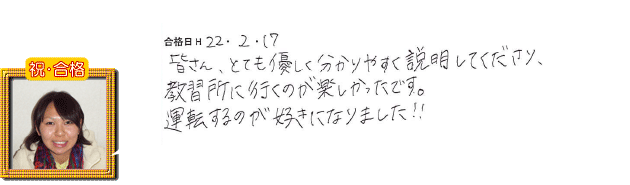 祝・合格
合格日H 22・2・17
皆さん、とても優しく分かりやすく説明してくださり、
教習所に行くのが楽しかったです。
運転するのが好きになりました!!